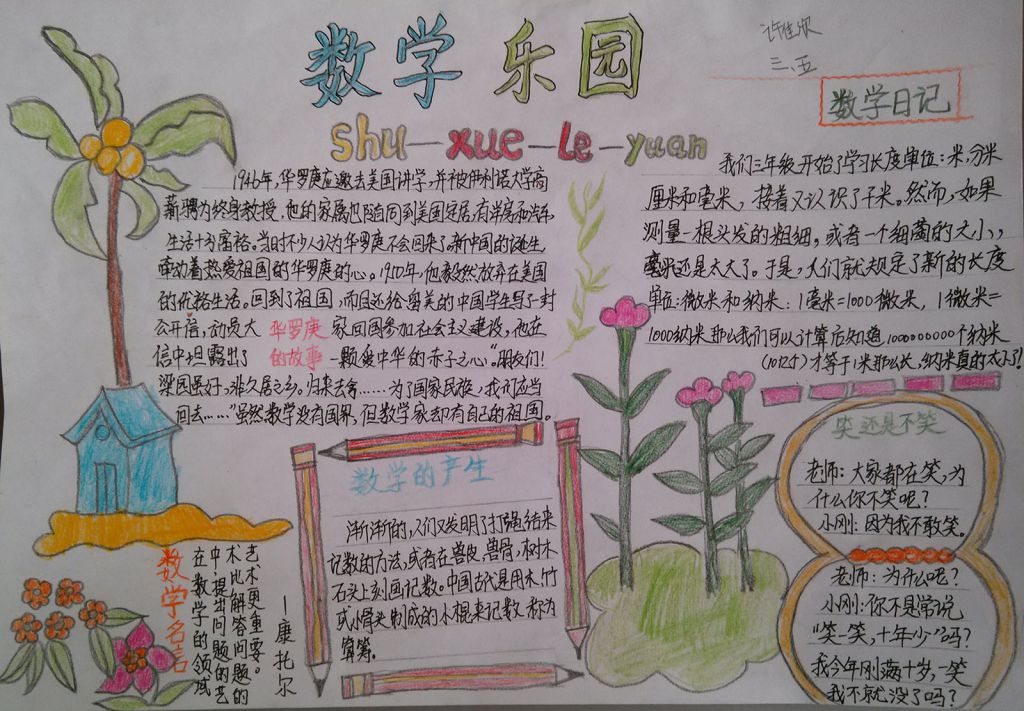 数学乐园
shu—xue—Le—yuan
许佳欣
三、五
数学日记
1946年,华罗庚应邀去美国讲学,并被伊利诺大学高
薪聘为终身教授。他的家属也随同到美国定居,有洋房和汽车,
生活十分富裕。当时不少人认为华罗庚不会回来了新中国的诞生,
牵动着热爱祖国的华罗庚的心。1950年,他毅然放弃在美国
的优裕生活。回到了祖国,而且还给留美的中国学生写了一封
公开信,动员大家回国参加社会主义建设,他在
信中坦露出了一颗爱中华的赤子之心”。朋友们!
梁园虽好,非久居之乡。归来去兮……为了国家民族,我们应当
回去……”虽然数学没有国界,但数学家却有自己的祖国。
华罗庚
的故事
我们三年级开始了学习长度单位:米,分米
厘米和毫米,接着又认识了千米。然而,如果
测量一根头发的粗细,或者一个细菌的大小,
毫米还是太大了。于是,人们就规定了新的长度
单位:微米和纳米:1毫米=1000微米,1微米=
1000纳米那么我们可以计算后知道1000000000个纳米
(10亿)才等于1米那么长,纳米真的太小了!
数学的产生
渐渐的,人们又发明了打绳结来
记数的方法,或者在兽皮,兽骨,树木
石头上刻画记数。中国古代是用木、竹
或骨头制成的小棍来记数,称为
算筹。
笑还是不笑
老师:大家都在笑,为
什么你不笑呢?
小刚:因为我不敢笑。
老师:为什么呢?
小刚:你不是常说
“笑一笑,十年少”吗?
我今年刚满十岁,一笑
我不就没了吗?
数学名言
在数学的领域
中提出问题的艺
术比解答问题的
艺术更重要。
—康托尔